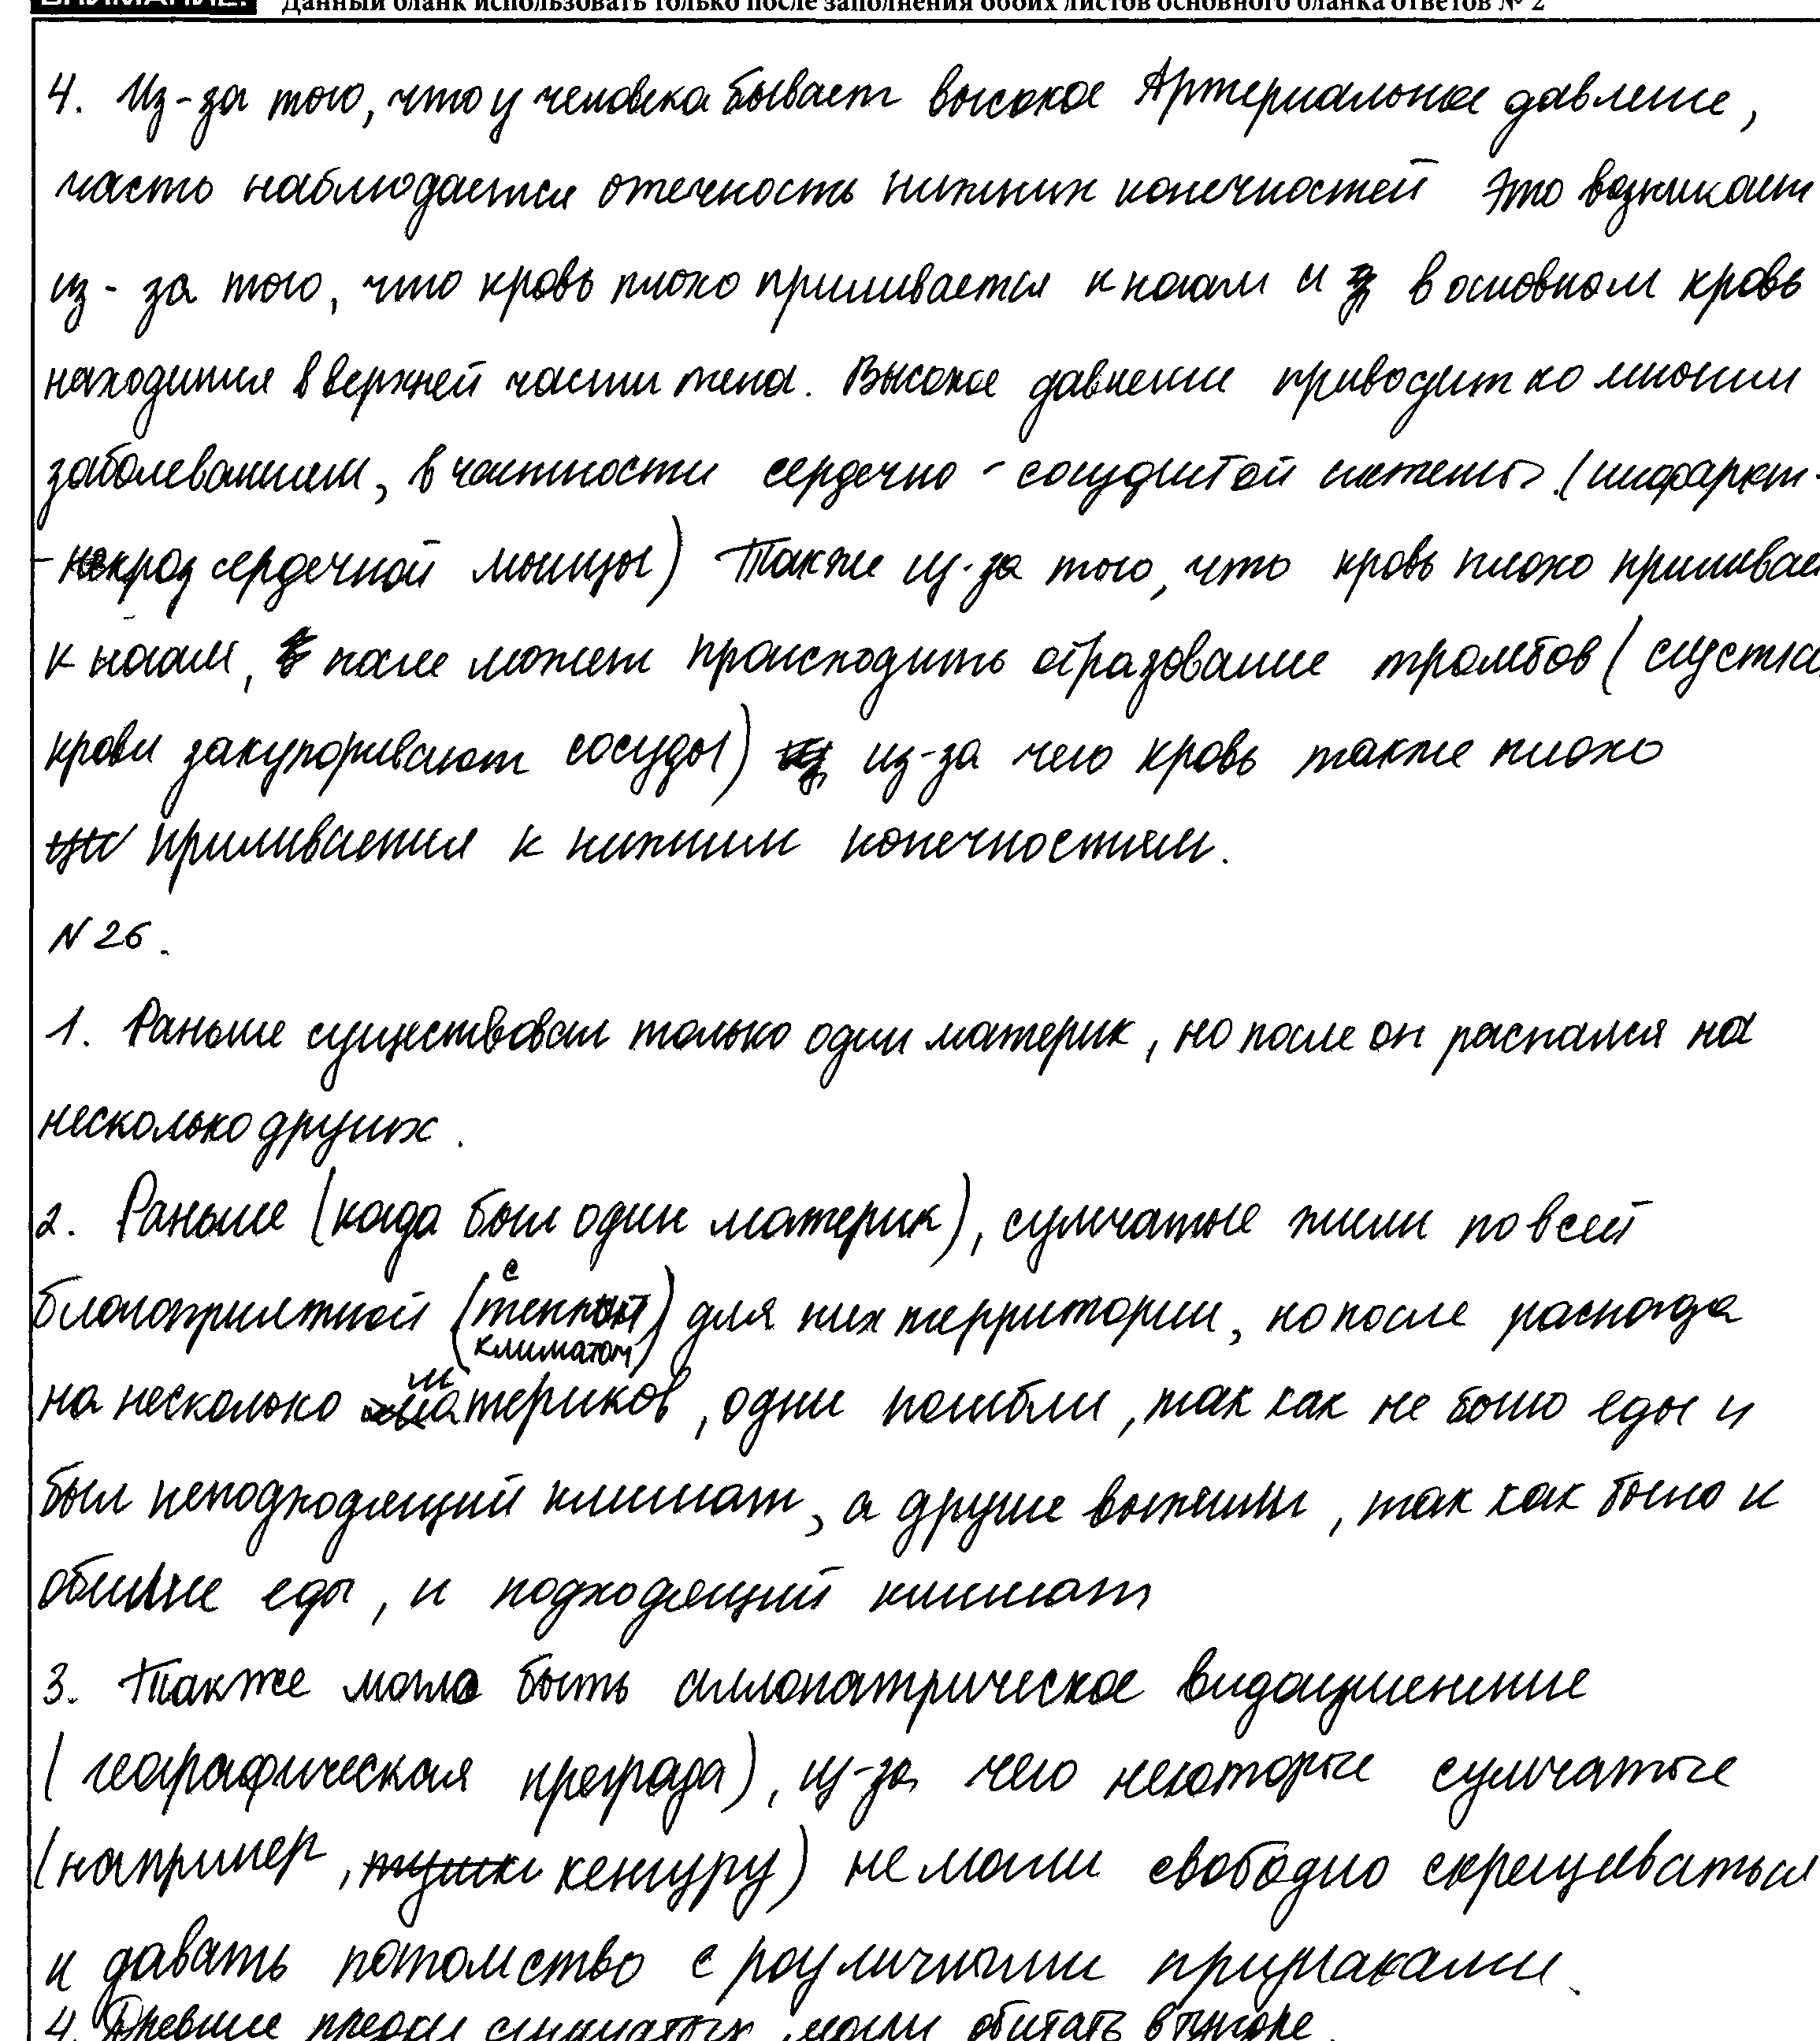 ВНИМАНИЕ! Данный бланк использовать только после заполнения обоих листов основного бланка ответов № 2
4. Из-за того, что у человека бывает высокое Артериальное давление,
часто наблюдается отечность нижних конечностей Это возникает
из-за того, что кровь плохо приливается к ногам и в основном кровь
находится в верхней части тела. Высокое давление приводит ко многим
заболеваниям, в частности сердечно-сосудистой системы (инфаркт-
-некроз сердечной мышцы) Также из-за того, что кровь плохо приливае
к ногам, после может происходить образование тромбов (сгустки
крови закупоривают сосуды) из-за чего кровь также плохо
приливается к нижним конечностям.
N 26.
1. Раньше существовал только один материк, но после он распался на
несколько других.
2. Раньше (когда был один материк), сумчатые жили по всей
благоприятной (с теплым климатом) для них территории, но после распада
на несколько материков, одни погибли, так как не было еды и
был неподходящий климат, а другие выжили, так как было и
обилие еды, и подходящий климат
3. Также могло быть аллопатрическое видообразование
(географическая преграда), из-за чего некоторые сумчатые
(например, кенгуру) не могли свободно скрещиваться
и давать потомство с различными признаками.
4. Древние предки сумчатых могли обитать в